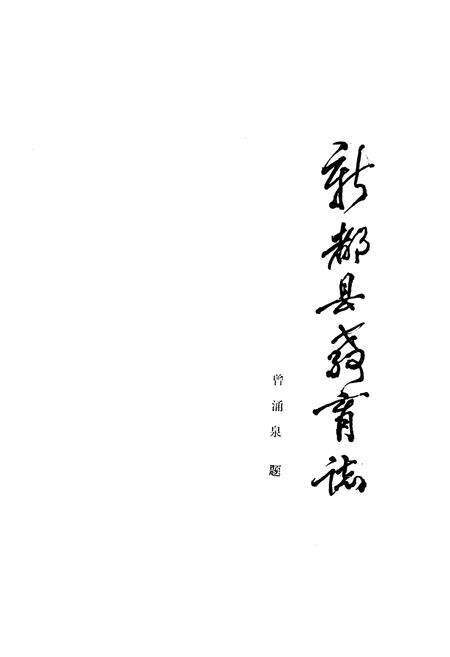 新都县教育誌
曾涌泉 题